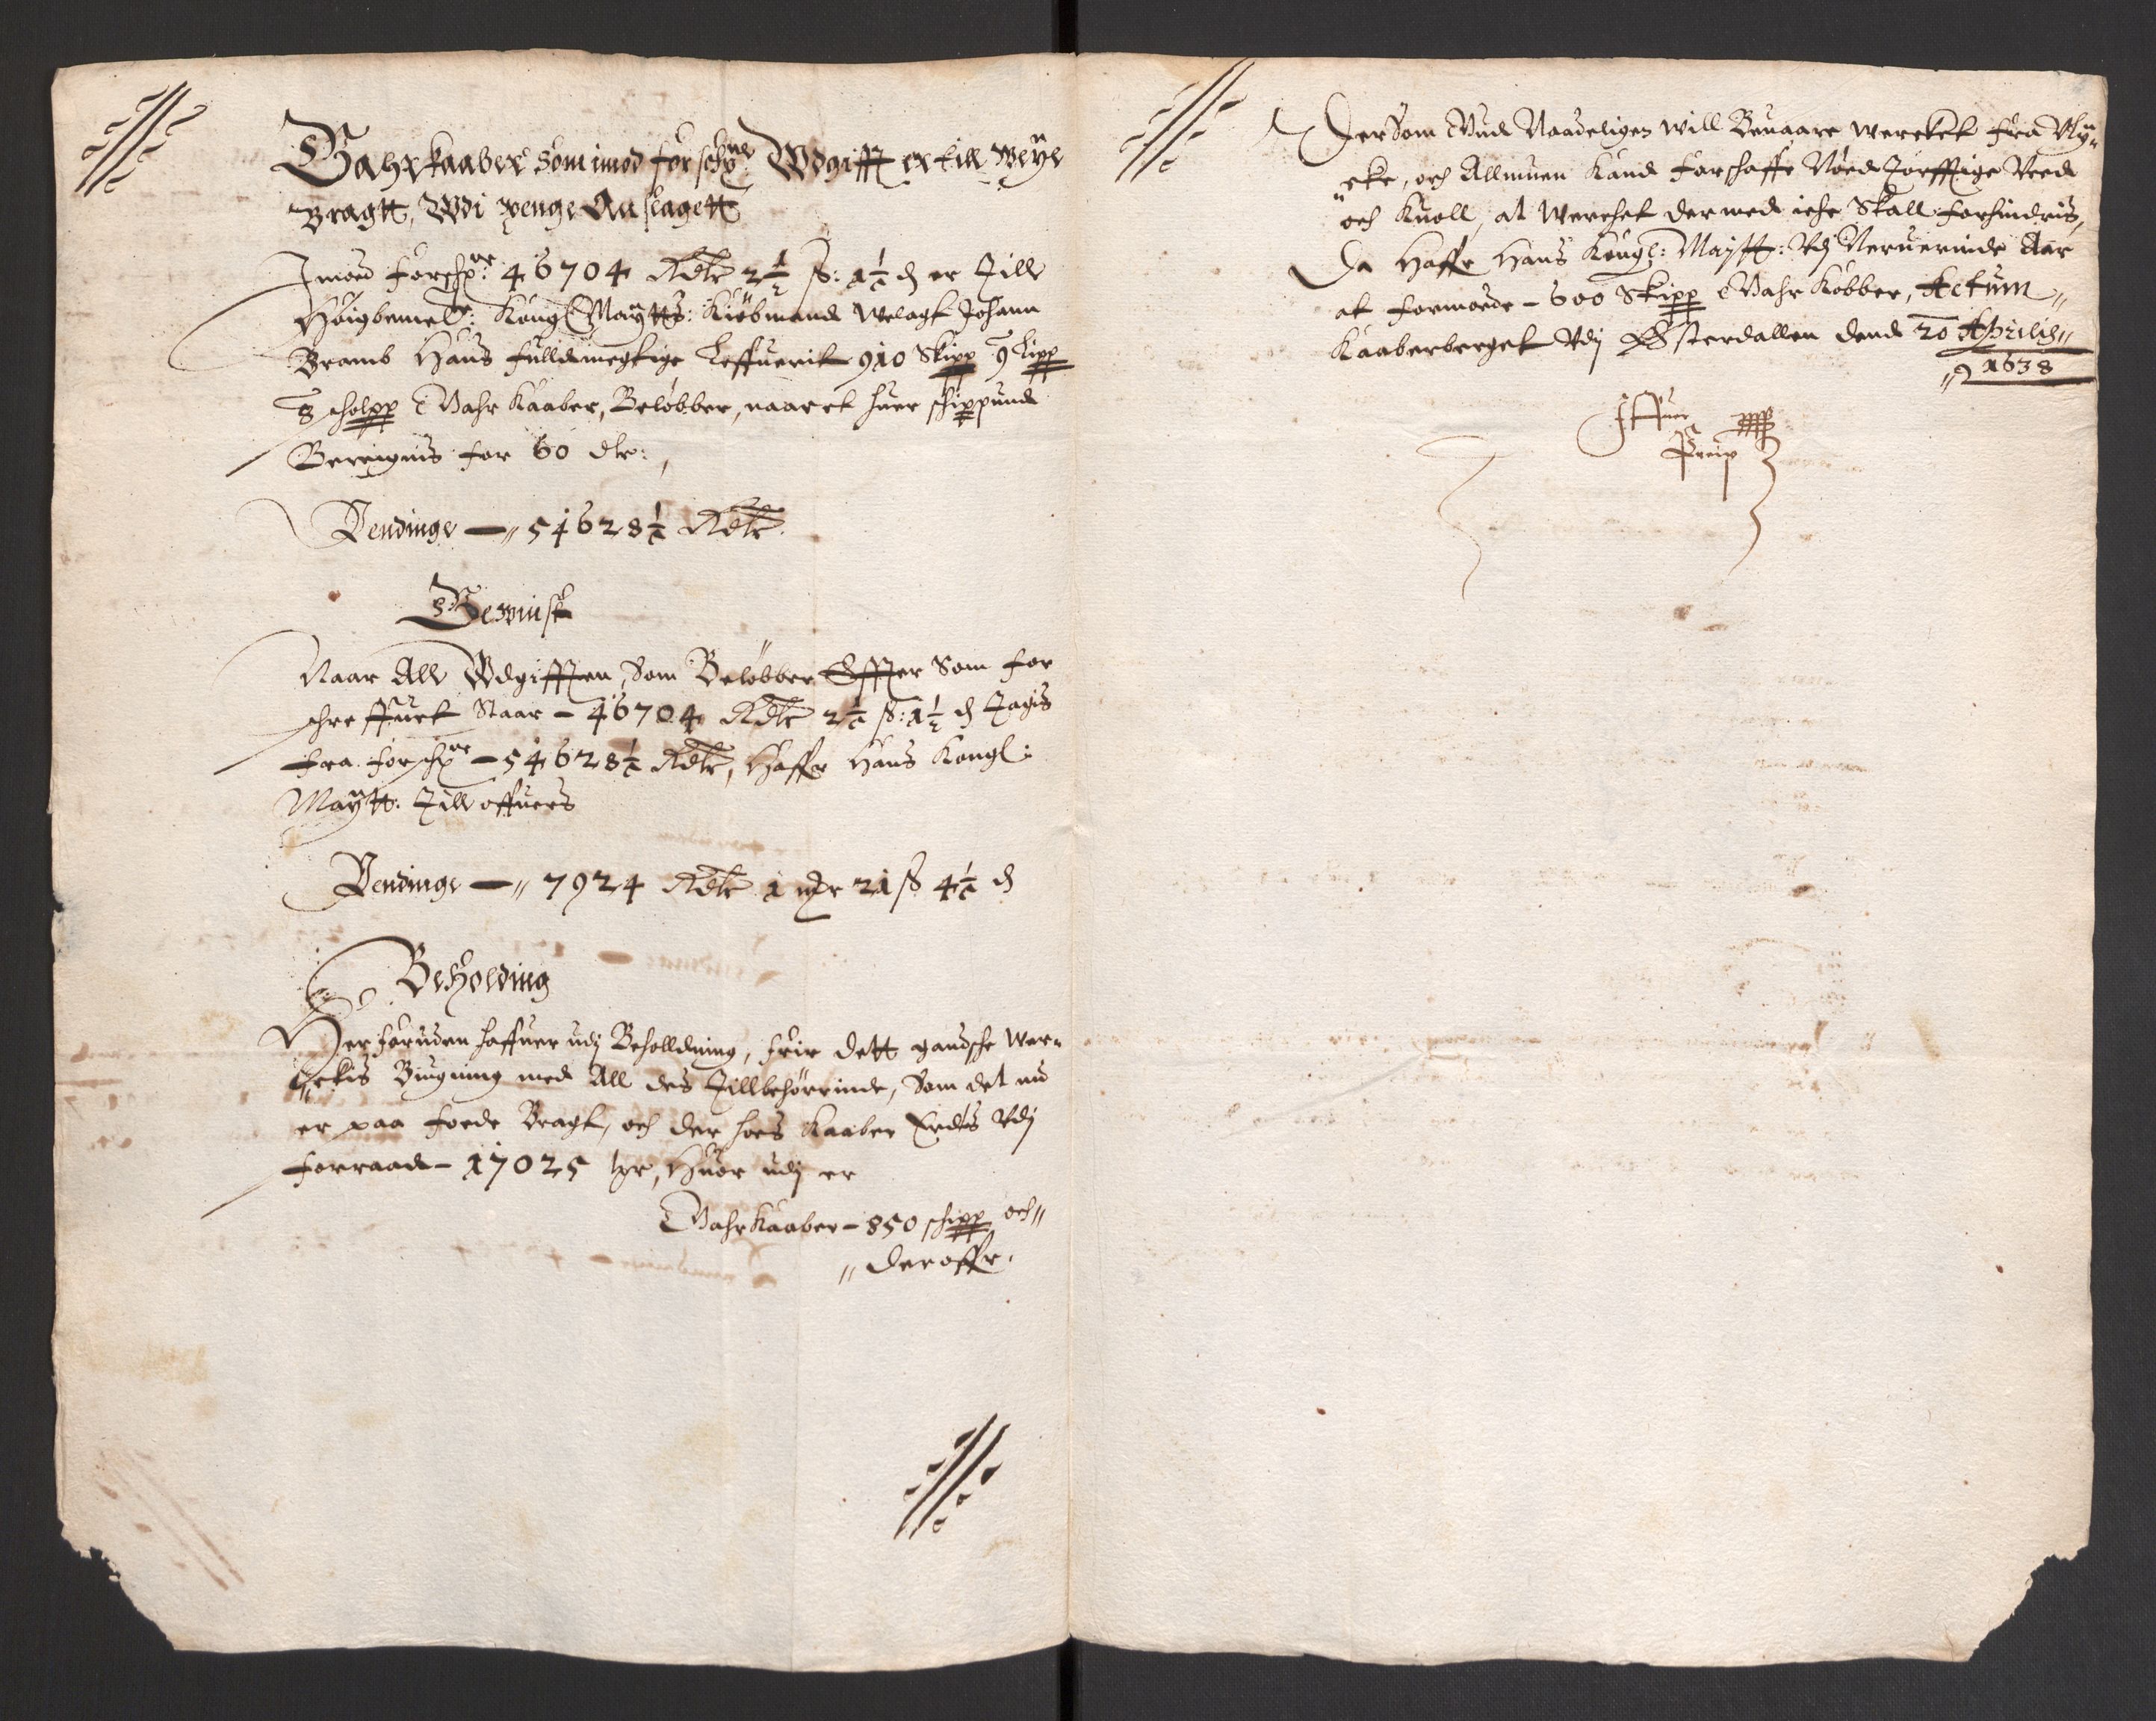 Gahrkaaber som imod forschne Wdgifft er till Weye
Bragtt, Wdi penge Anslagett
Imoed forschne: 46704 Rdlr 2½ ß: 1½ d er Till
Høigbemelt: Kongl Maytts: Kiøbmand Welagt Johann
Bramb Hans fuldmegtige Leffuerit 910 Skipp 9 Lipp
8 scholpp Gahr Kaaber, Beløbber, naar et huer schippund
Bereignis for 60 dlr:
Pendinge — 54628½ Rdlr
Gewinst
Naar All Wdgifften, Som Beløbber Effter Som for
schreffuet Staar – 46704 Rdlr 2½ ß: 1½ d Tagis
fra forschne – 54628½ Rdlr, Haffr Hans Kongl:
Maytt: Till offuers
Pendinge — 7924 Rdlr 1 mk 21 ß 4½ d
Beholding
Her foruden haffuer udj Beholldning, frir dett gandsche Wer„
„ckis Bügning med All des Tillbehørrinde, Som det nu
er paa foede Bragt, och der hoes Kaaber Erdts Udj
forraad – 17025 tr, Huor udj er
Gahr Kaaber – 850 schipp och„
„ deroffr.
Der Som Gud Naadeligen will Beuaare Wercket fra Uly„
„cke, och Allmuen Kand forschaffe Nødtørfftige Veed
och Kuoll, at Werchet dermed iche Skall forhindris,
Da Haffr Hans Kongl: Maytt: Udj Neruerinde Aar
at formoede – 600 Skipp Gahr Kobber, Actum„
Kaaberberget Udj Østerdallen dend 20 Aprilis„
„ 1638
Iffuer
Prip